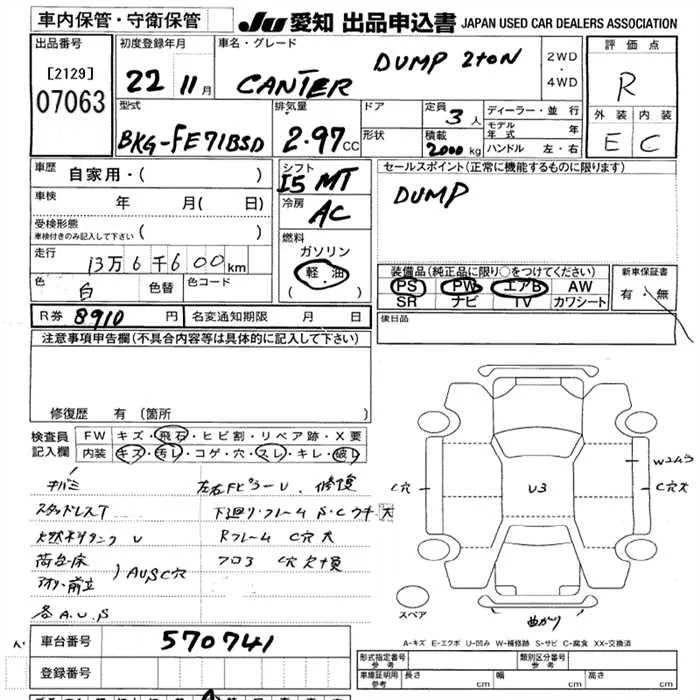 車内保管・守衛保管 JU 愛知 出品申込書 JAPAN USED CAR DEALERS ASSOCIATION
出品番号
[2129]
07063
初度登録年月
22 11月
車名・グレード
CANTER DUMP 2toN
2WD
・
4WD
評価点
R
外装 内装
E C
型式
BKG-FE71BSD
排気量
2.97cc
ドア
形状
定員 3人
積載 2000kg
ディーラー・並行
モデル年式 年
ハンドル 左・右
車歴
自家用・( )
車検 年 月( 日)
受検形態
車検付きのみ記入して下さい ( )
走行
13万6千600km
色 白 色替 色コード
シフト
I5 MT
冷房
AC
燃料
ガソリン
軽・油
( )
セールスポイント(正常に機能するものに限ります)
DUMP
装備品(純正品に限り○をつけてください)
PS PW エアB AW
SR ナビ TV カワシート
新車保証書
有・無
後日品
R券 8910 円 名変通知期限 月 日
注意事項申告欄(不具合内容等は具体的に記入して下さい)
修復歴 有(箇所 )
検査員
記入欄
FW キズ・飛石・ヒビ割・リペア跡・X要
内装 キズ・汚レ・コゲ・穴・スレ・キレ・破レ
スタッドレスT
荷台床
AUSC穴
各A.U.S
Rフレーム C穴大
フロア C穴
U3
C穴
C穴大
曲がり
スペア
A-キズ E-エクボ U-凹み W-補修跡 S-サビ C-腐食 XX-交換済
車台番号 570741
登録番号
形式指定番号
参考
類別区分番号
参考
車庫証明用
参考
長さ cm 幅 cm 高さ cm